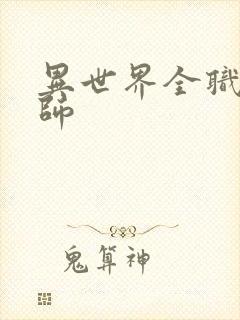 異世界全職
師
鬼算神